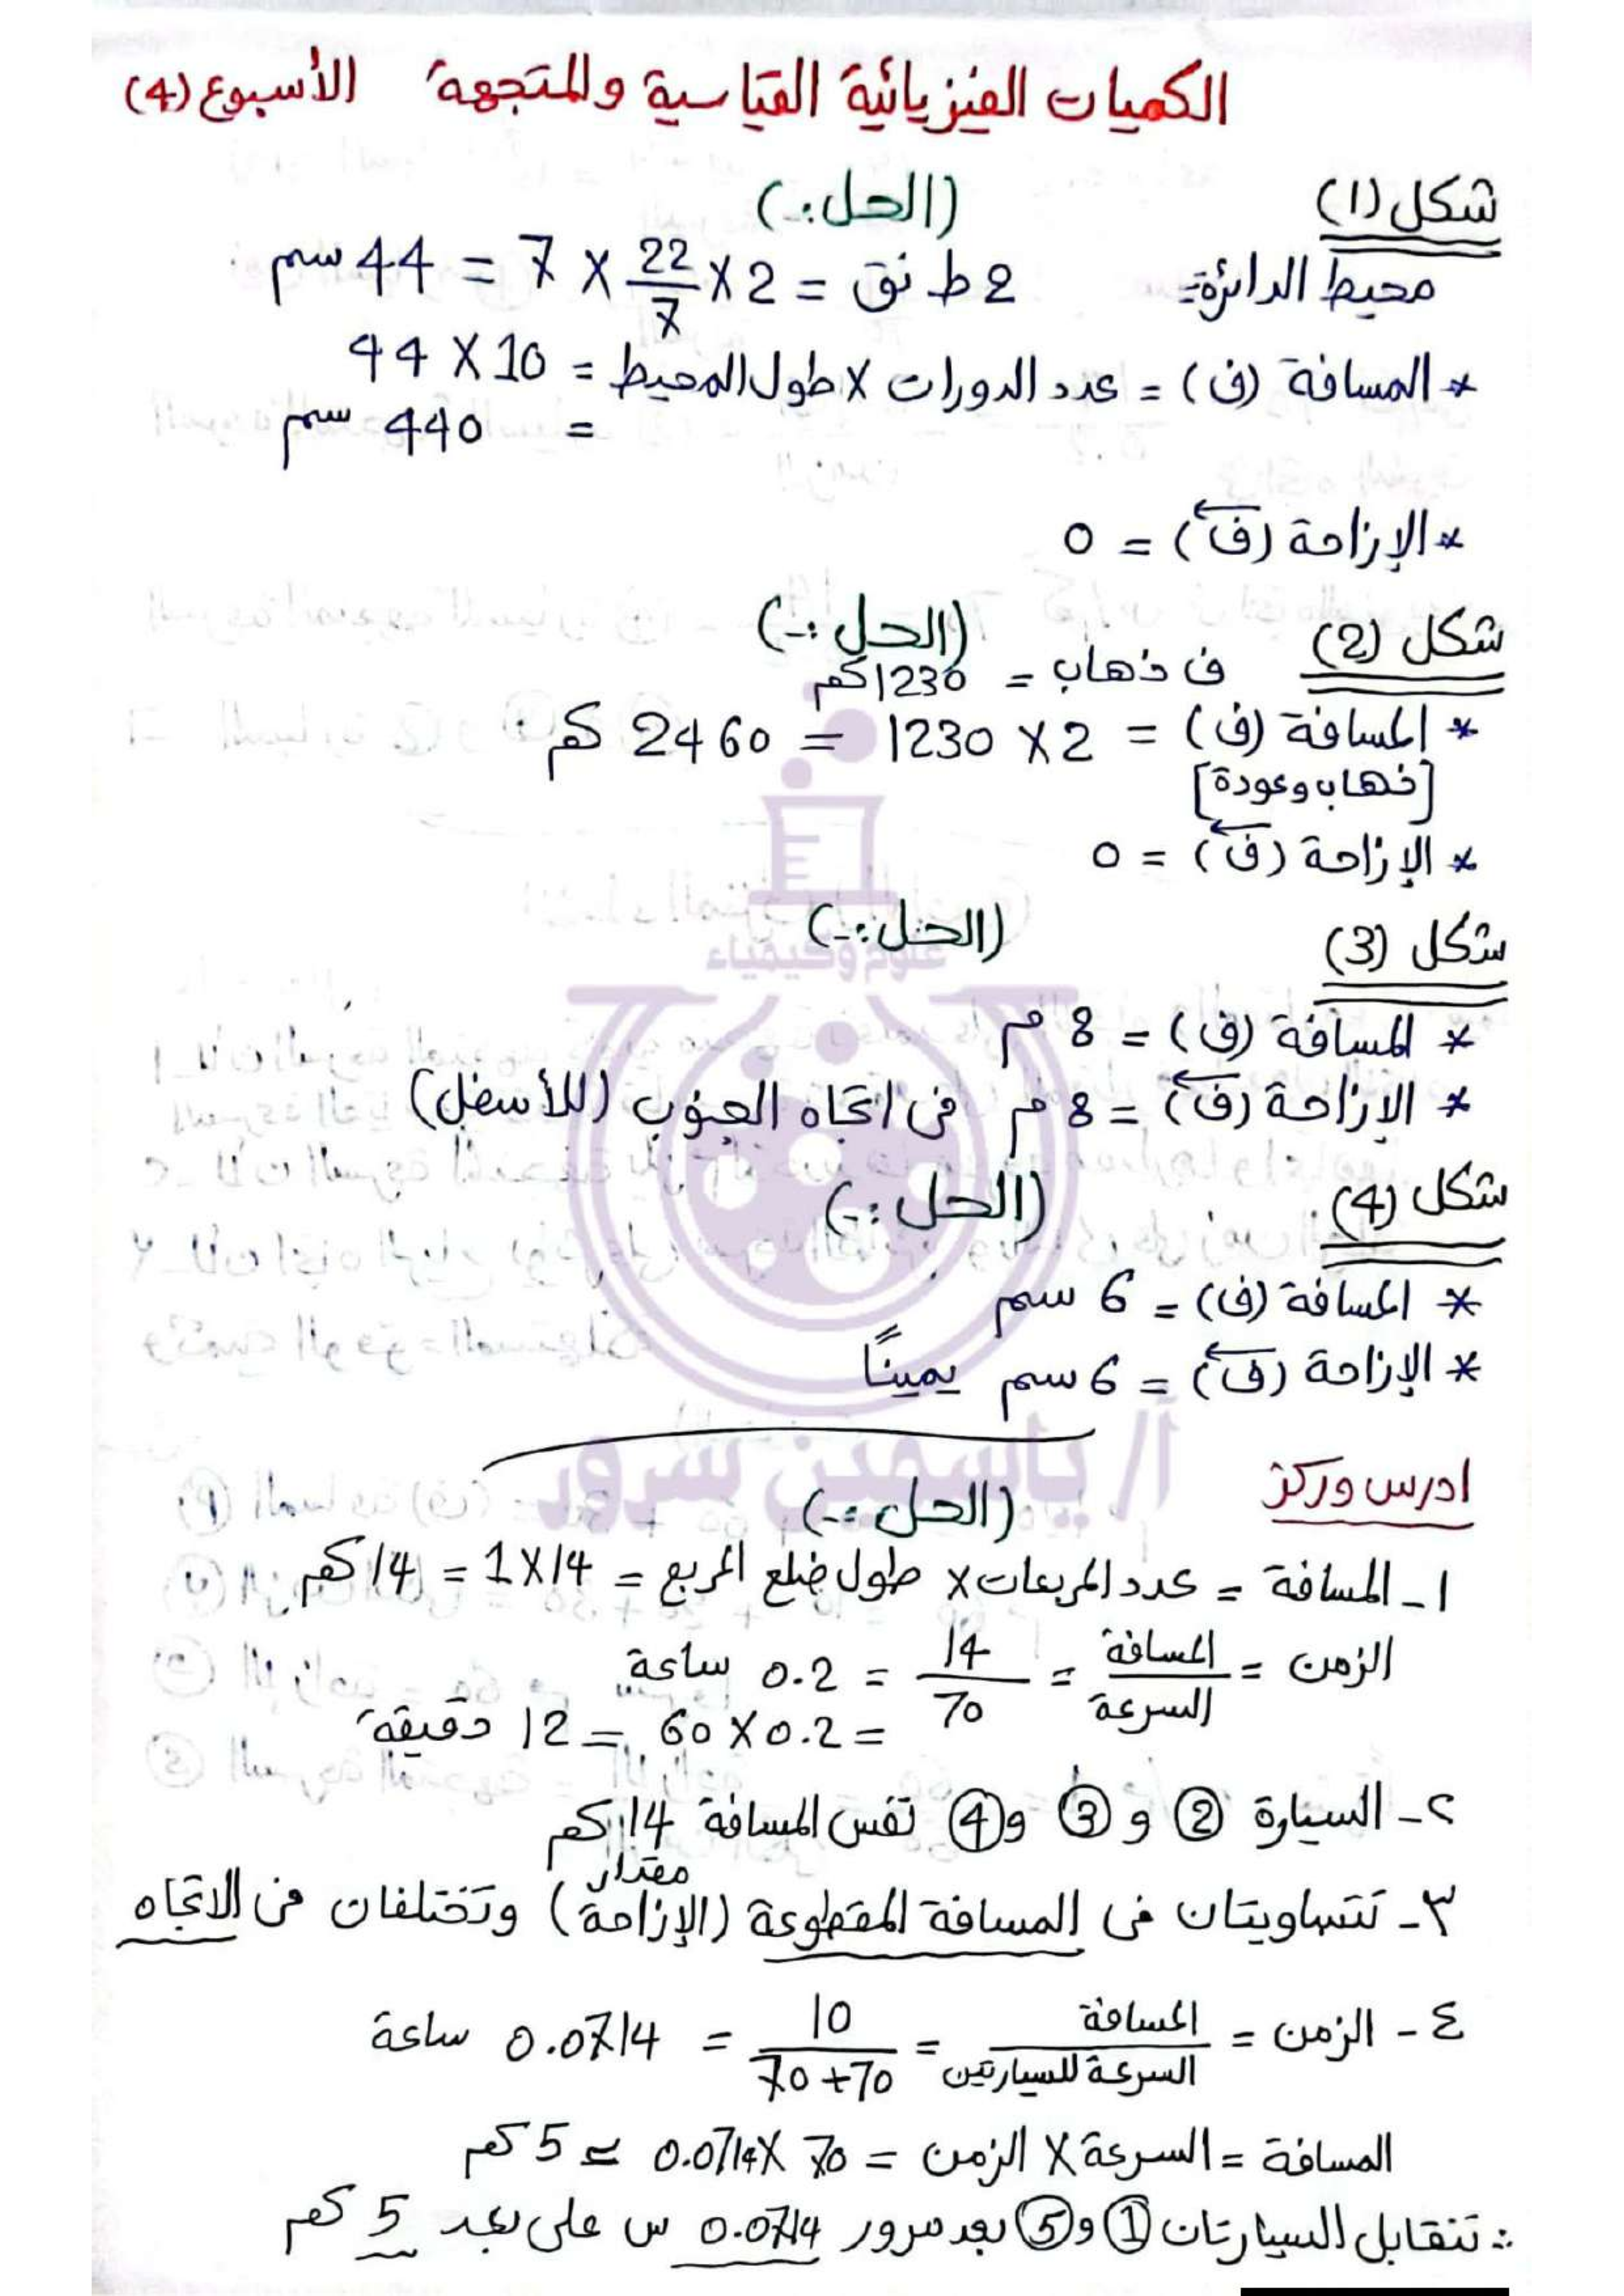 الكميات الفيزيائية القياسية والمتجهة الأسبوع (4)
شكل (1) (الحل:-)
محيط الدائرة = 2 ط نق = 2 × 22/7 × 7 = 44 سم
* المسافة (ف) = عدد الدورات × طول المحيط = 10 × 44
= 440 سم
* الإزاحة (ف←) = 0
شكل (2) (الحل:-)
ف ذهاب = 1230 كم
* المسافة (ف) = 2 × 1230 = 2460 كم
[ذهاب وعودة]
* الإزاحة (ف←) = 0
شكل (3) (الحل:-)
علوم وكيمياء
* المسافة (ف) = 8 م
* الإزاحة (ف←) = 8 م في اتجاه الجنوب (للأسفل)
شكل (4) (الحل:-)
* المسافة (ف) = 6 سم
* الإزاحة (ف←) = 6 سم يمينًا
أ/ ياسمين سرور
ادرس وركز
(الحل:-)
1- المسافة = عدد المربعات × طول ضلع المربع = 14 × 1 = 14 كم
الزمن = المسافة / السرعة = 14 / 70 = 0.2 ساعة
= 0.2 × 60 = 12 دقيقة
٢- السيارة ② و ③ و ④ نفس المسافة 14 كم
مقدار
٣- تتساويتان في المسافة المقطوعة (الإزاحة) وتختلفان في الاتجاه
٤- الزمن = المسافة / السرعة للسيارتين = 10 / 70+70 = 0.0714 ساعة
المسافة = السرعة × الزمن = 70 × 0.0714 ≃ 5 كم
∴ تتقابل السيارتان ① و ⑤ بعد مرور 0.0714 س على بعد 5 كم